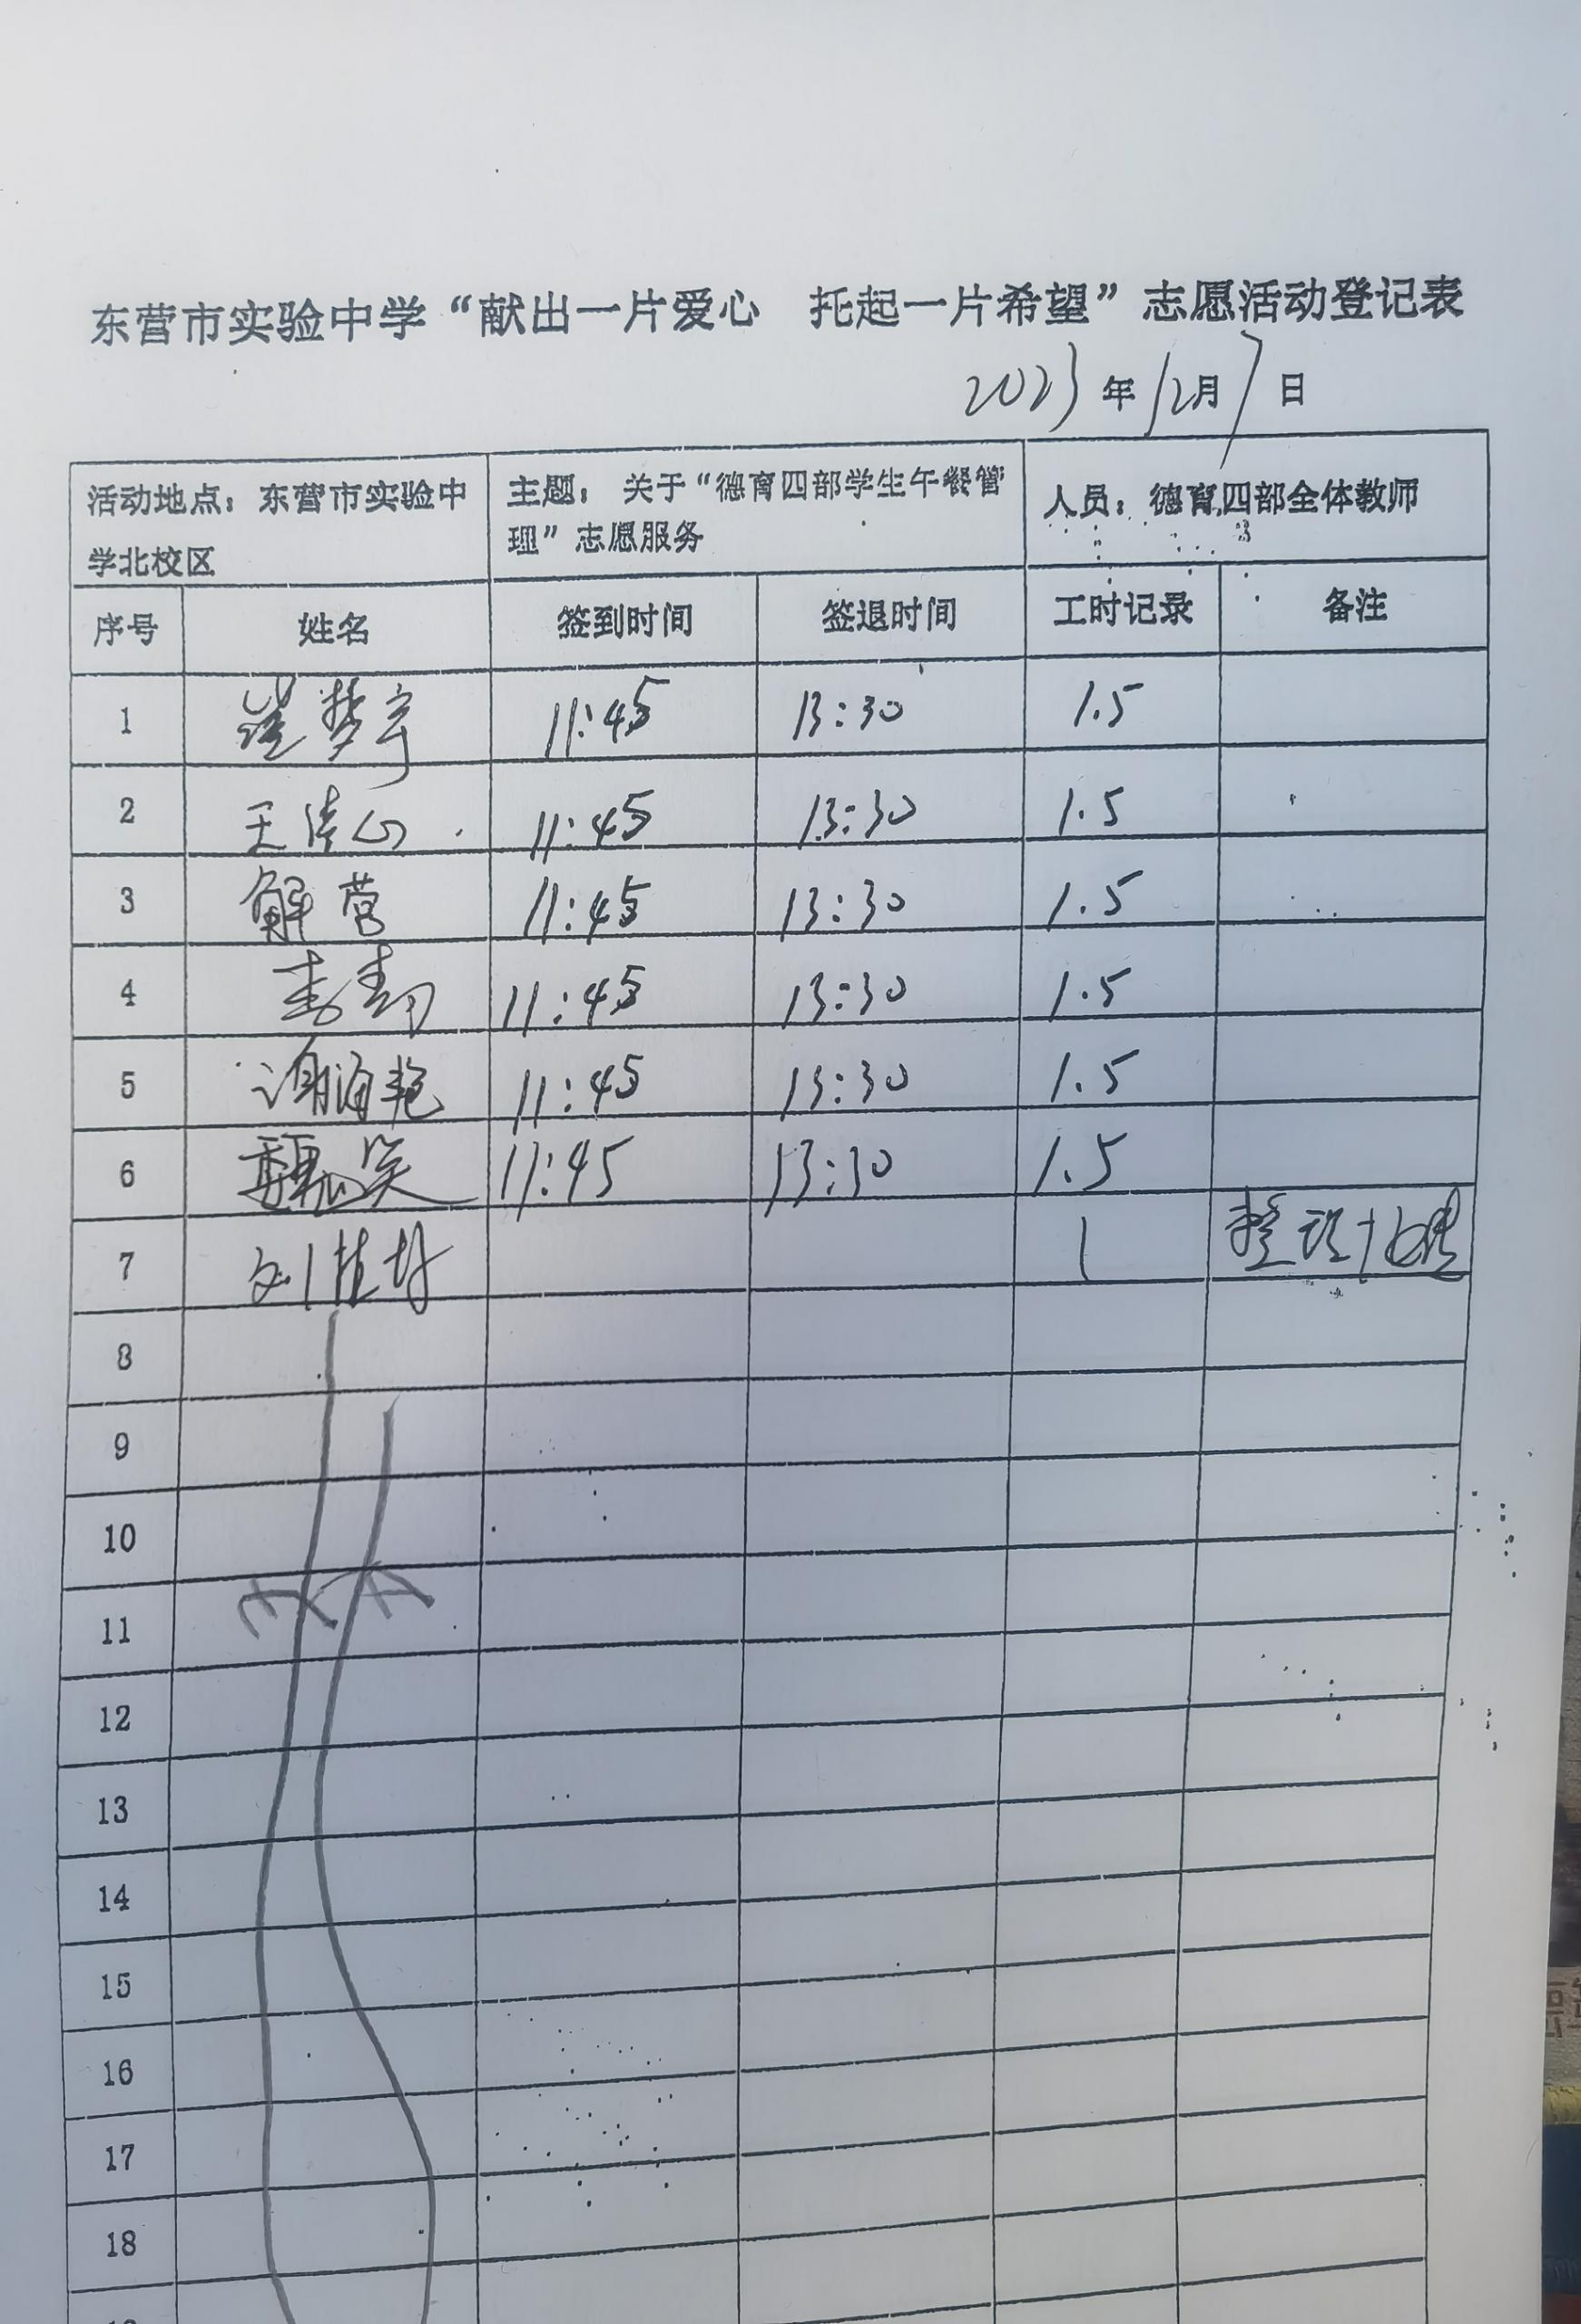 东营市实验中学“献出一片爱心 托起一片希望”志愿活动登记表
2023年12月7日
活动地点：东营市实验中
学北校区
主题：关于“德育四部学生午餐管
理”志愿服务
人员：德育四部全体教师
序号 姓名 签到时间 签退时间 工时记录 备注
1 崔梦宇 11:45 13:30 1.5
2 王 山 11:45 13:30 1.5
3 解营 11:45 13:30 1.5
4 李 11:45 13:30 1.5
5 谢海艳 11:45 13:30 1.5
6 魏 笑 11:45 13:30 1.5
7 刘 1 整理
8
9
10
11
12
13
14
15
16
17
18